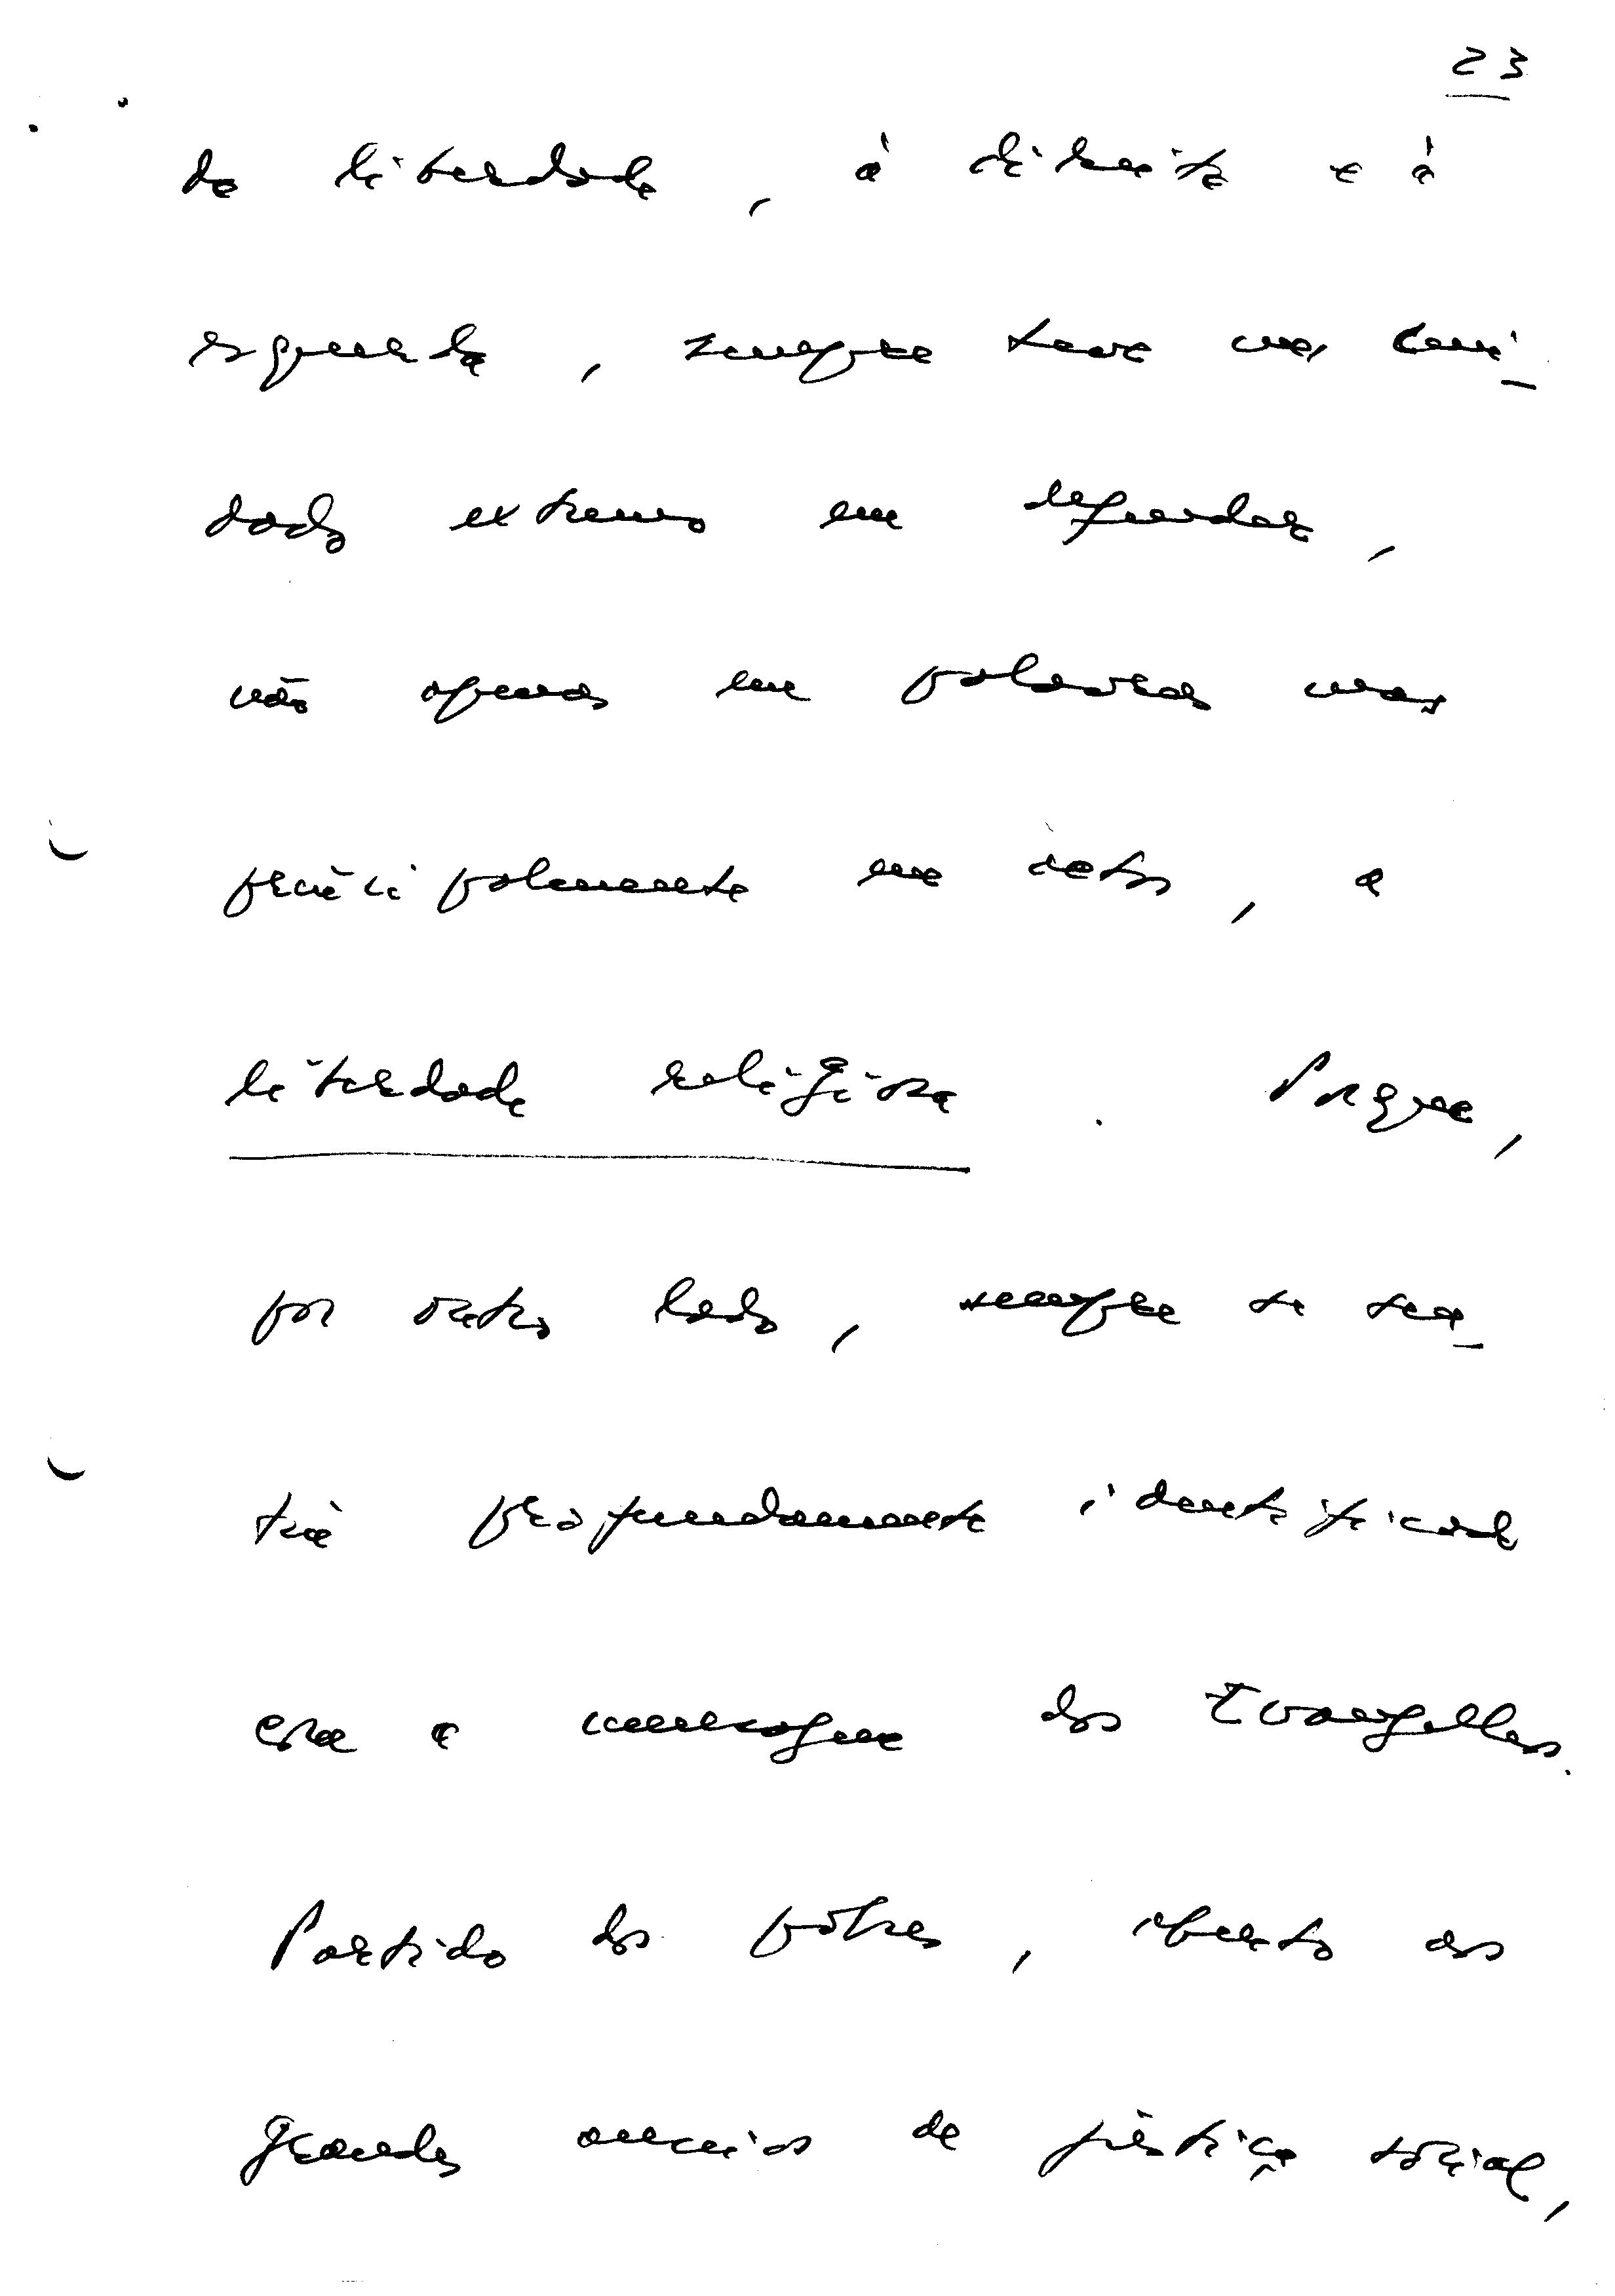 23
da liberdade, à direita e à
esquerda, sempre teve um cui-
dado extremo em resguardar,
não apenas em palavras mas
principalmente em actos, a
liberdade religiosa. Porque,
por outro lado, sempre se sen-
tiu profundamente identificado
com a mensagem dos Evangelhos.
Partido dos pobres, aberto aos
grandes anseios de justiça social,